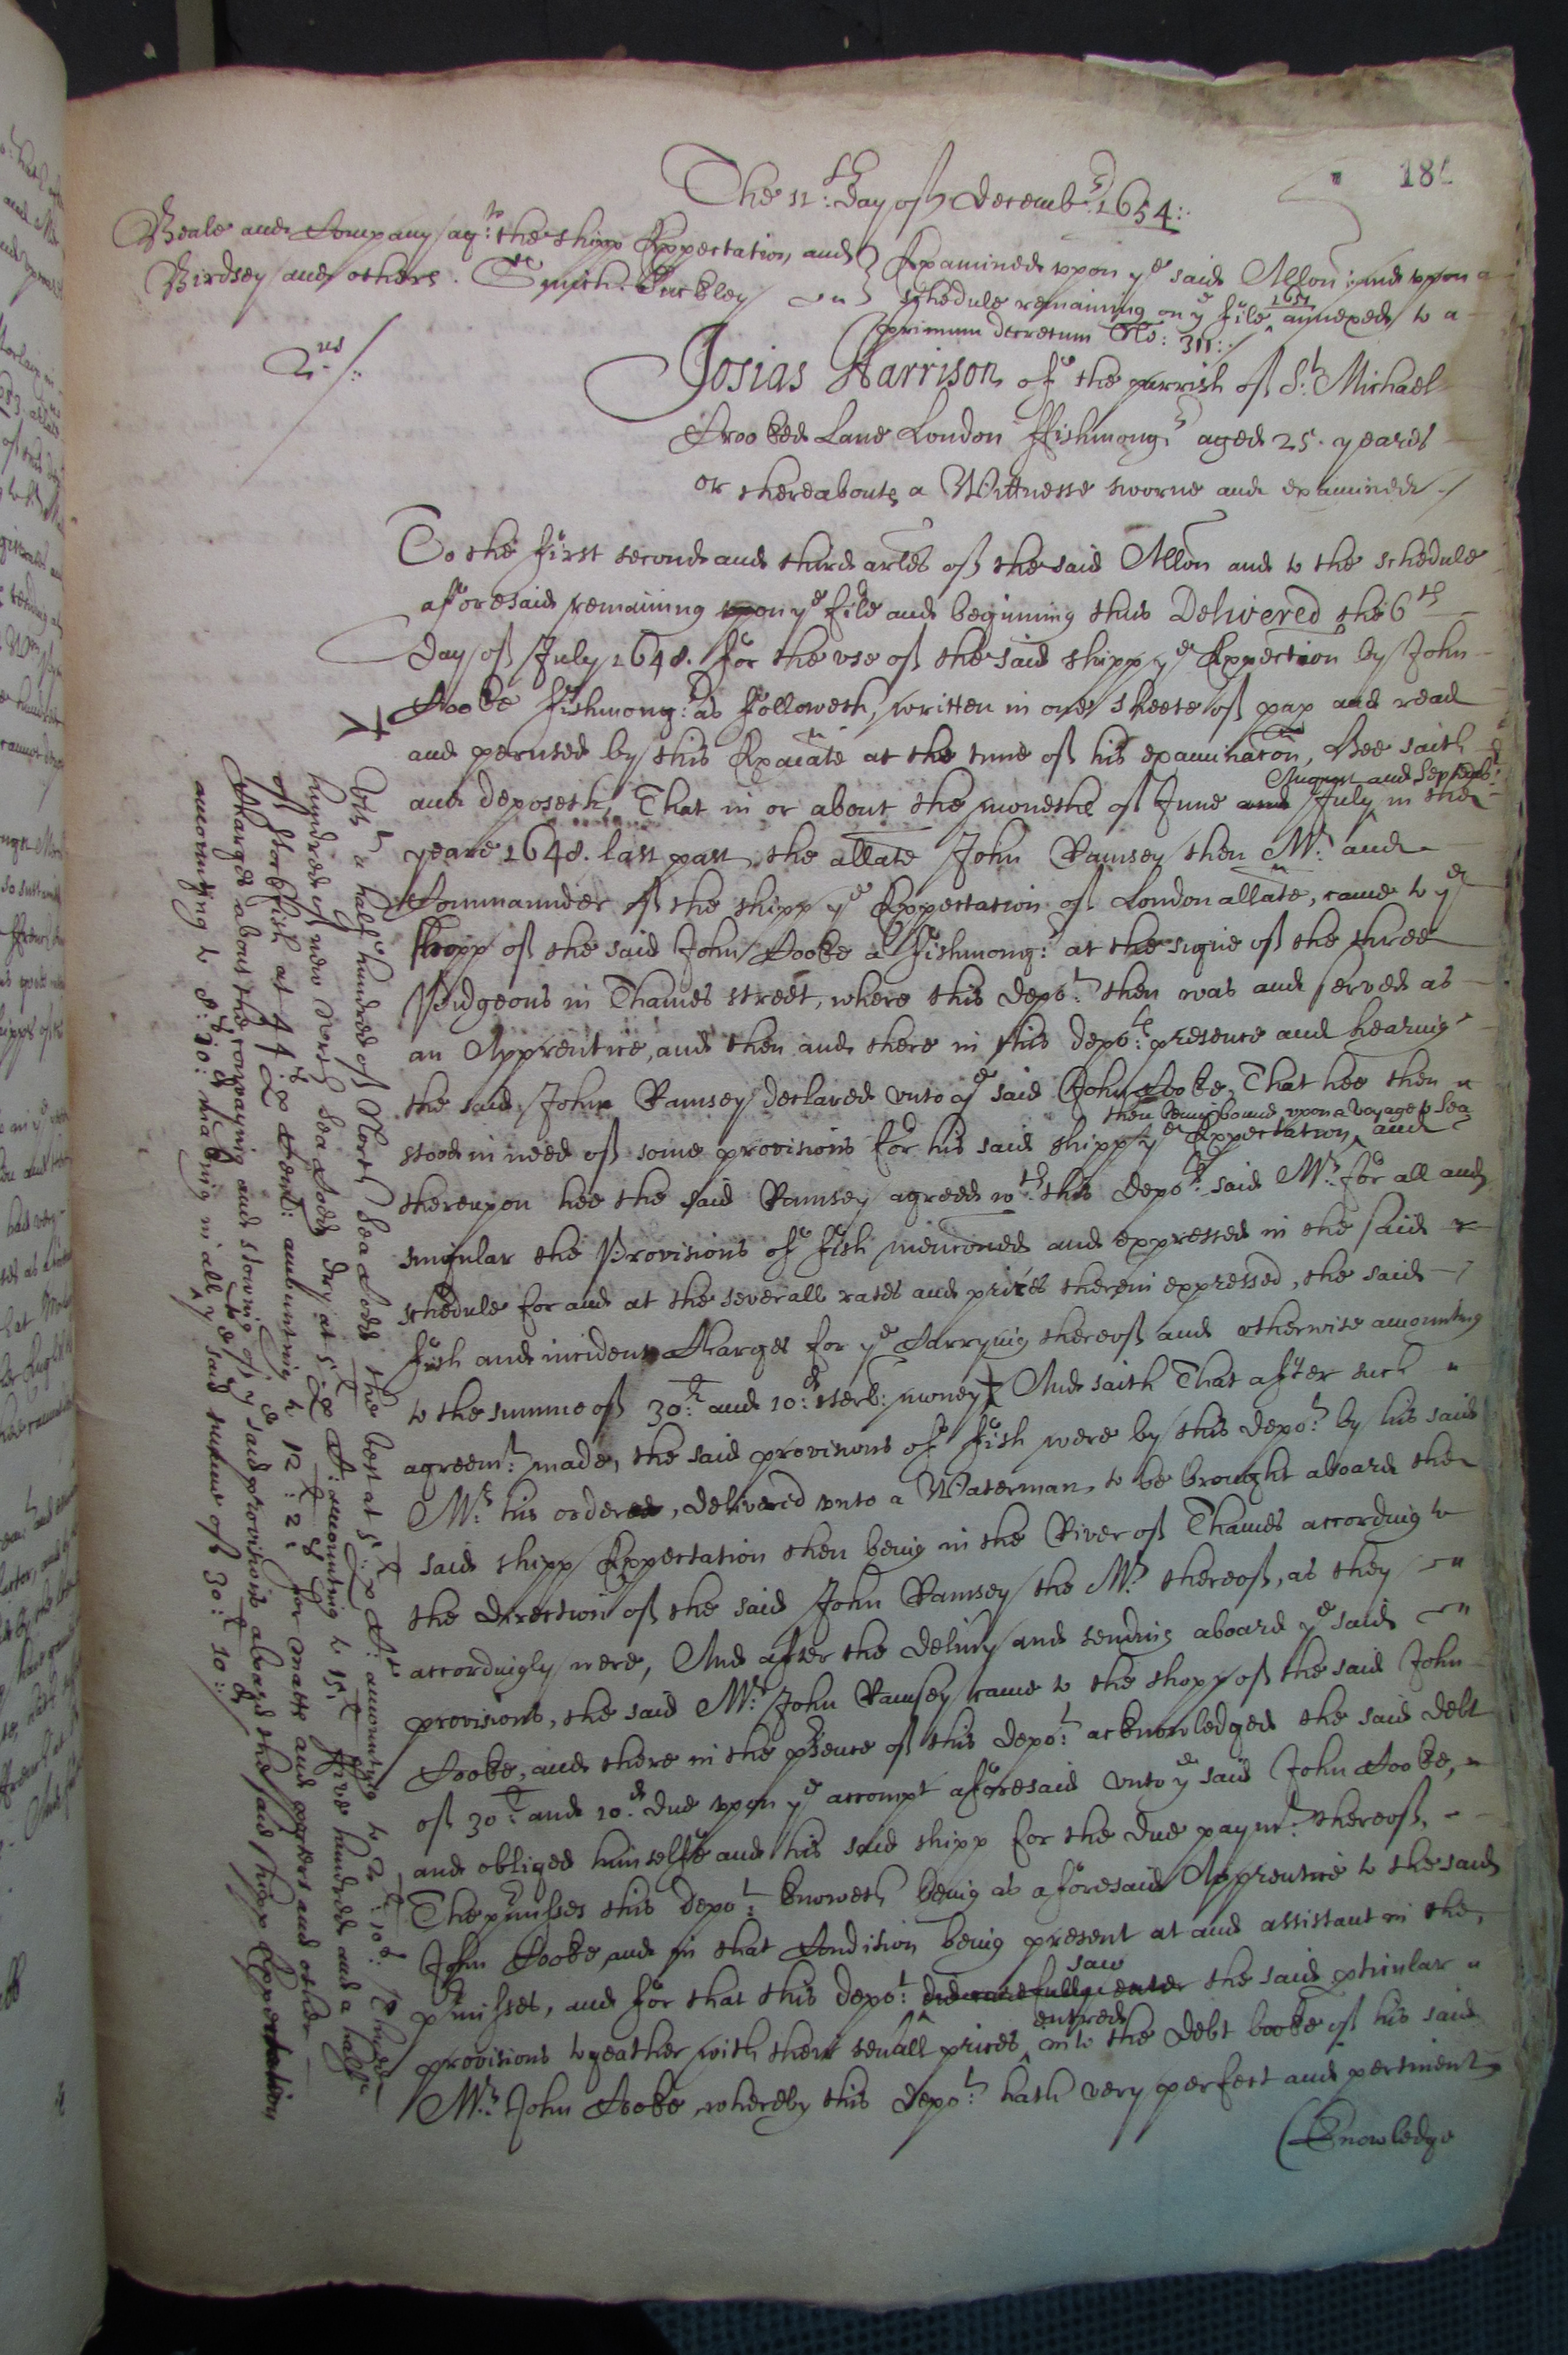 The 11:th day of Decemb:r 1654:
18
Beale and Company ag:t the shipp Expectation, and
Birdsey and others. Smith. Suckley
Examined upon ye said Allon: and upon a
schedule remaining on ye file 1651 annexed to a
primum decretum No: 311:
2.us
Josias Harrison of the parrish of St. Michael
Crooked Lane London ffishmong:r aged 25. yeares
or thereabouts a Wittnesse sworne and examined
To the first second and third arles of the said Allon and to the schedule
aforesaid remaining upon ye file and beginning thus Delivered the 6th
day of July 1648. for the use of the said shipp ye Expection by John
Cooke fishmong:r as followeth, written in one sheete of pap and read
and perused by this Exaiate at the time of his examinacon, Hee saith
and deposeth, That in or about the moneths of June and July August and Septemb:r in the
yeare 1648. last past, the allate John Ramsey then Mr. and
Commaunder of the shipp ye Expectation of London allate, came to ye
shopp of the said John Cooke a fishmong:r at the signe of the three
Pidgeons in Thames street, where this depo:t then was and served as
an Apprentice, and then and there in this depo:ts presence and hearing
the said John Ramsey declared unto ye said John Cooke, That hee then
stood in need of some provisions for his said shipp ye Expectation then being bound upon a voyage to sea and
thereupon hee the said Ramsey agreed wth this depo:ts said Mr. for all and
singular the Provisions of fish mencioned and expressed in the said
schedule for and at the severall rates and prices therein expressed, the said
fish and incident Charges for ye Carrying thereof and otherwise amounting
to the summe of 30:li and 10:d sterl: money And saith That after such
agreem:t made, the said provisions of fish were by this depo:t by his said
Mr. his order, delivered unto a Waterman, to be brought aboard the
said shipp Expectation then being in the River of Thames according to
the direction of the said John Ramsey the Mr. thereof, as they
accordingly were, And after the delivy and sending aboard ye said
provisions, the said Mr. John Ramsey came to the shopp of the said John
Cooke, and there in the psence of this depo:t acknowledged the said debt
of 30:li and 10:d due upon ye accompt aforesaid unto ye said John Cooke,
and obliged himselfe and his said shipp for the due paym:t thereof,
The pmisses this depo:t knoweth being as aforesaid Apprentice to the said
John Cooke and in that Condision being present at and assistant in the
pmisses, and for that this depo:t did carefully enter saw the said pticular
provisions togeather with their seuall prices entred into the debt booke of his said
Mr. John Cooke, whereby this depo:t hath very perfect and pertinent
Knowledge
a half hundred of North sea Codd the best at 5:li p C:t amounting to 2:li: 10s: Three
hundred of new North sea Codd dry at 5:li p C: amounting to 15:li ffive hundred and a halfe
of Stockfish at 44:s p Cent: amounting to 12:li: 2:s for matts and porters and other
Charges about the carrying and stowing of ye said provisions aboard the said shipp Expectation
amounting to 8:s: 10:d making in all ye said summe of 30:li 10:d